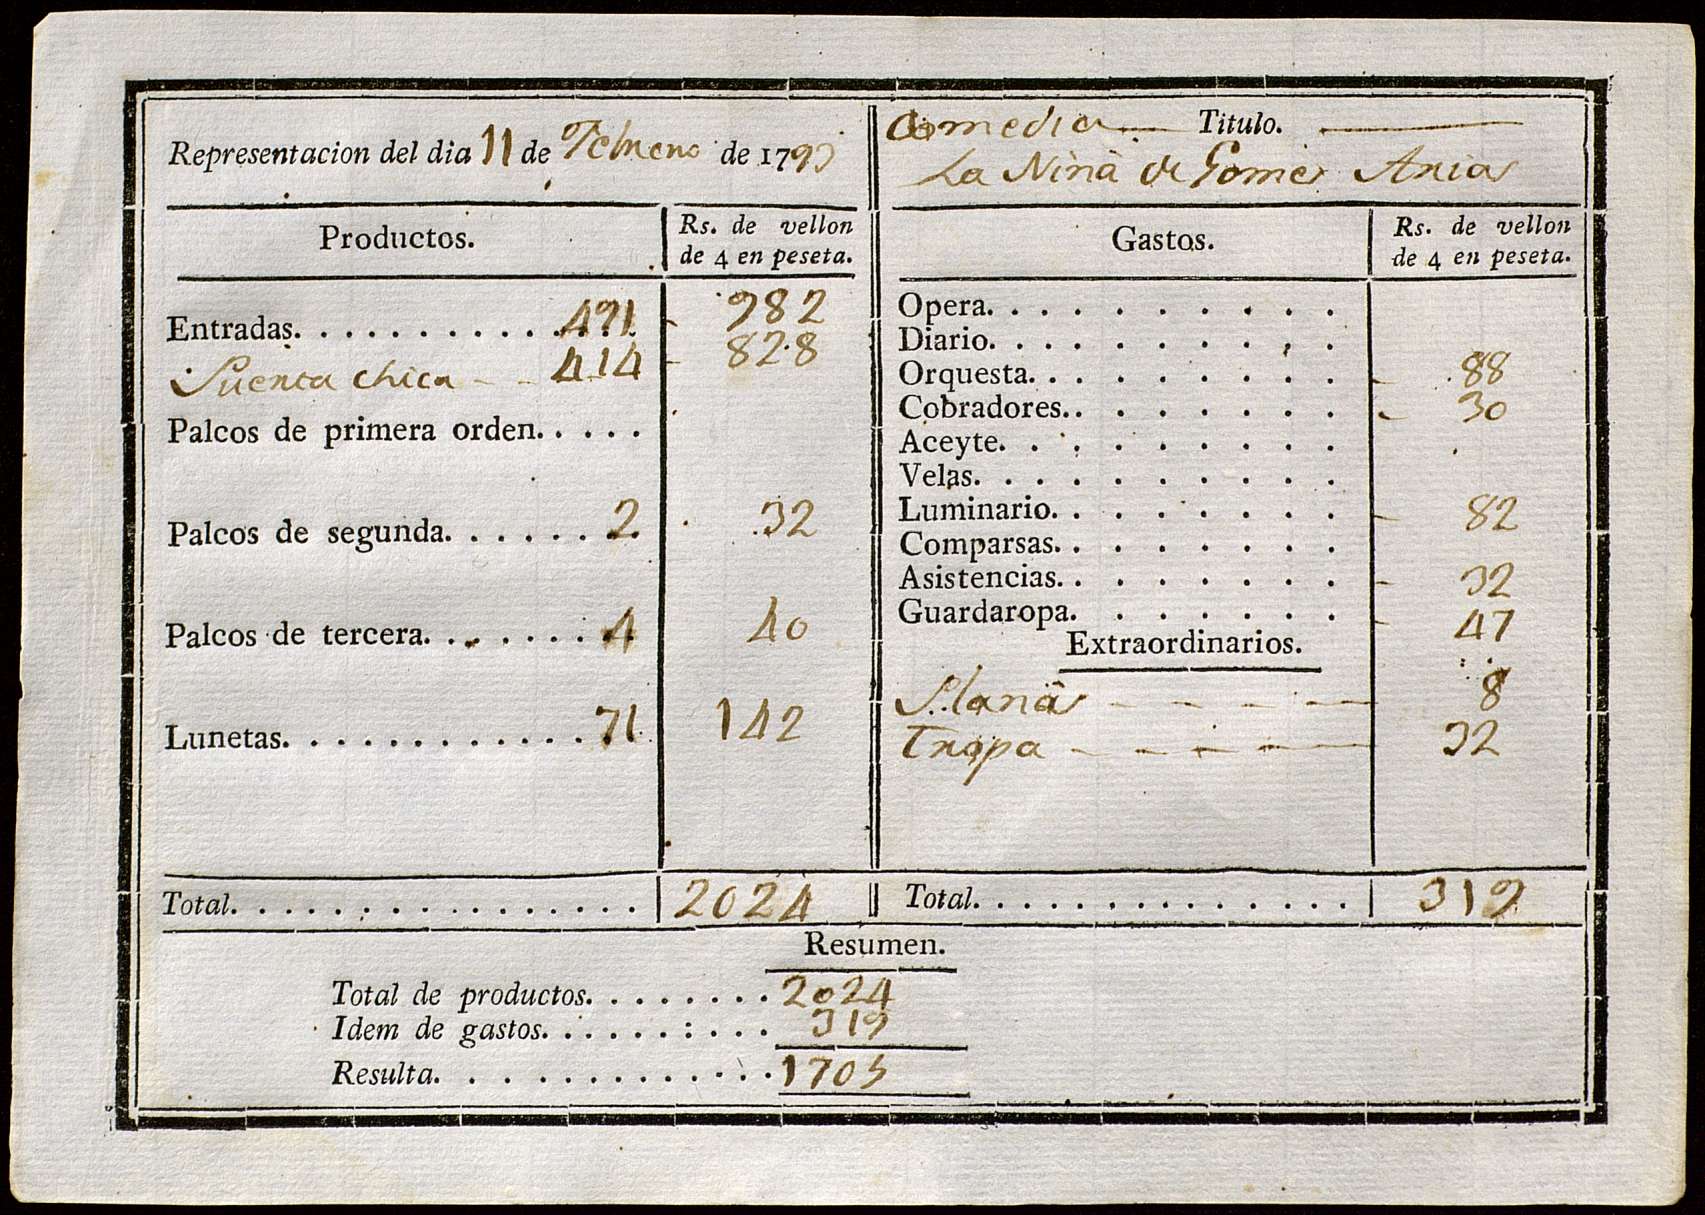 Representacion del dia 11 de Febrero de
Comedia Titulo.
La Niña de Gomes Arias
Productos. Rs. de vellon de 4 en peseta.
Entradas. 491 982
Puerta chica 414 828
Palcos de primera orden.
Palcos de segunda. 2 32
Palcos de tercera. 4 40
Lunetas. 71 142
Total. 2024
Gastos. Rs. de vellon de 4 en peseta.
Opera.
Diario.
Orquesta. 88
Cobradores. 30
Aceyte.
Velas.
Luminario. 82
Comparsas.
Asistencias. 32
Guardaropa. 47
Extraordinarios.
8
Tropa 32
Total. 319
Resumen.
Total de productos. 2024
Idem de gastos. 319
Resulta. 1705